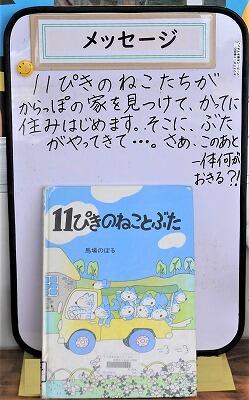 メッセージ
11ぴきのねこたちが
からっぽの家を見つけて、かってに
住みはじめます。そこに、ぶた
がやってきて…。さぁ、このあと
一体何が
おきる?!
11ぴきのねことぶた
馬場のぼる